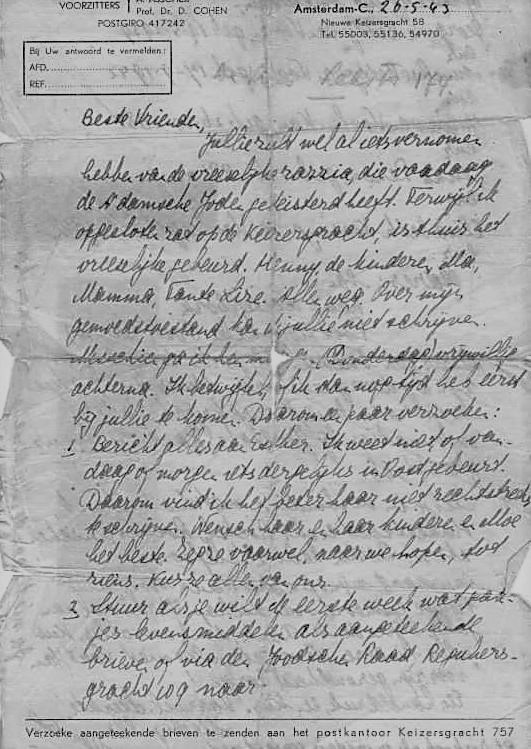 VOORZITTERS
Prof. Dr. D. COHEN
POSTGIRO 417242
Amsterdam-C., 26-5-43
Nieuwe Keizersgracht 58
Tel. 55003, 55136, 54970
Bij Uw antwoord te vermelden:
AFD.
REF.
Beste Vrienden,
Jullie zult wel al iets vernomen
hebben van de vreeselijke razzia, die vandaag
de A'damsche Joden geteisterd heeft. Terwijl ik
opgesloten zat op de Keizersgracht, is thuis het
vreselijke gebeurd. Henny, de kinderen,
Mamma, Tante Lize. Allen weg. Over mijn
gemoedstoestand kan ik jullie niet schrijven.
Misschien ga ik hen Donderdag vrijwillig
achterna. Ik betwijfel, of ik dan nog tijd heb eerst
bij jullie te komen. Daarom een paar verzoeken:
1. Bericht alles aan Esther. Ik weet niet of van-
daag of morgen iets dergelijks in Oost gebeurt.
Daarom vind ik het beter haar niet rechtstreeks
te schrijven. Wensch haar en haar kinderen
het beste. Zeg ze vaarwel, naar we hopen, tot
ziens. Kus ze allen van ons.
2 Stuur als je wilt de eerste week wat pak-
jes levensmiddelen als aangeteekende
brieven of via den Joodschen Raad,
gracht 109 naar
Verzoeke aangeteekende brieven te zenden aan het postkantoor Keizersgracht 757